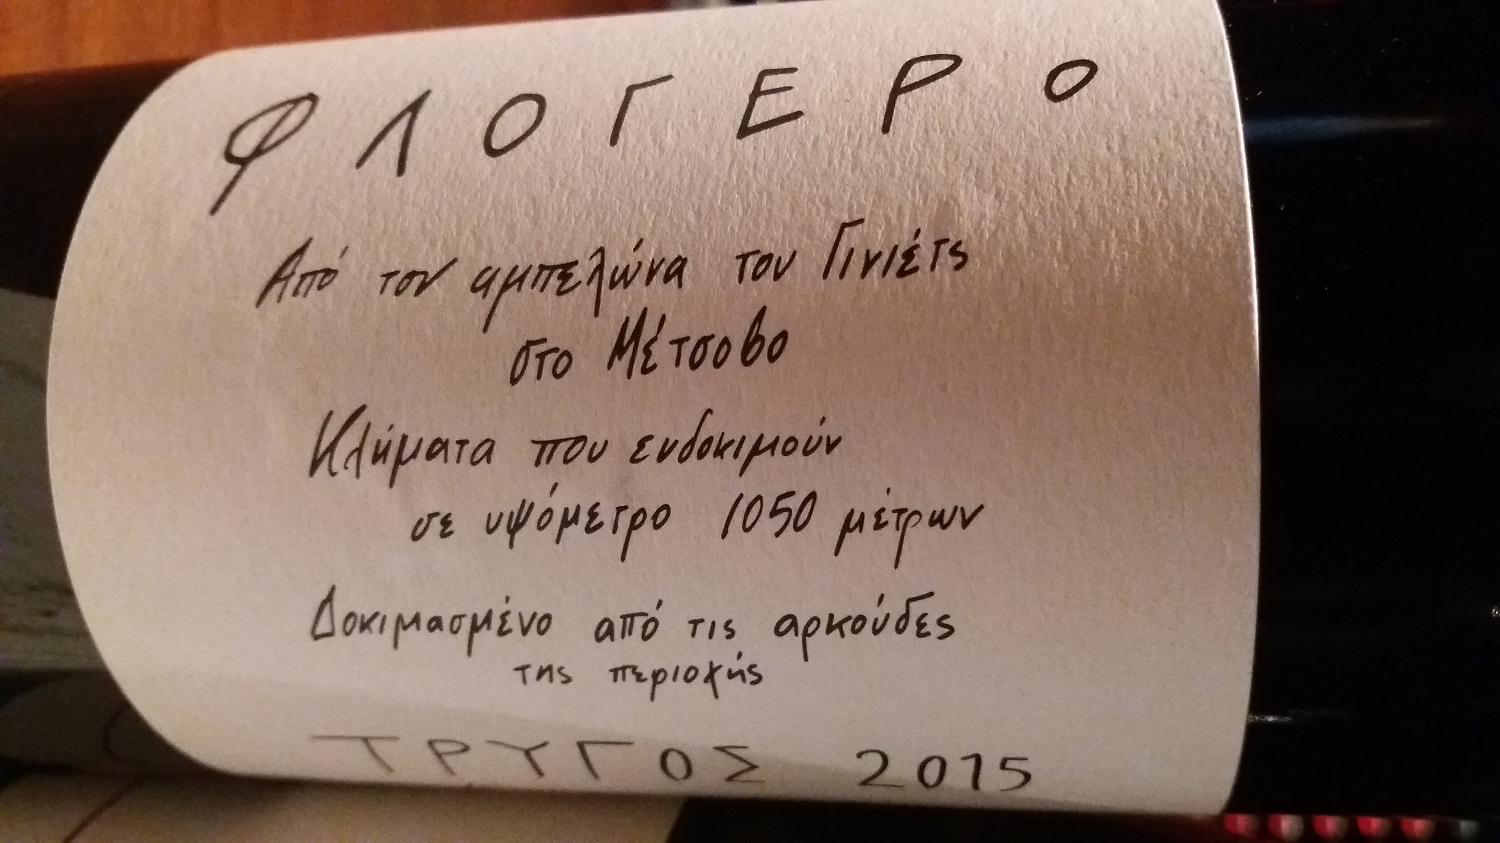 ΦΛΟΓΕΡΟ
Από τον αμπελώνα του Γινιέτς
στο Μέτσοβο
Κλήματα που ευδοκιμούν
σε υψόμετρο 1050 μέτρων
Δοκιμασμένο από τις αρκούδες
της περιοχής
ΤΡΥΓΟΣ 2015